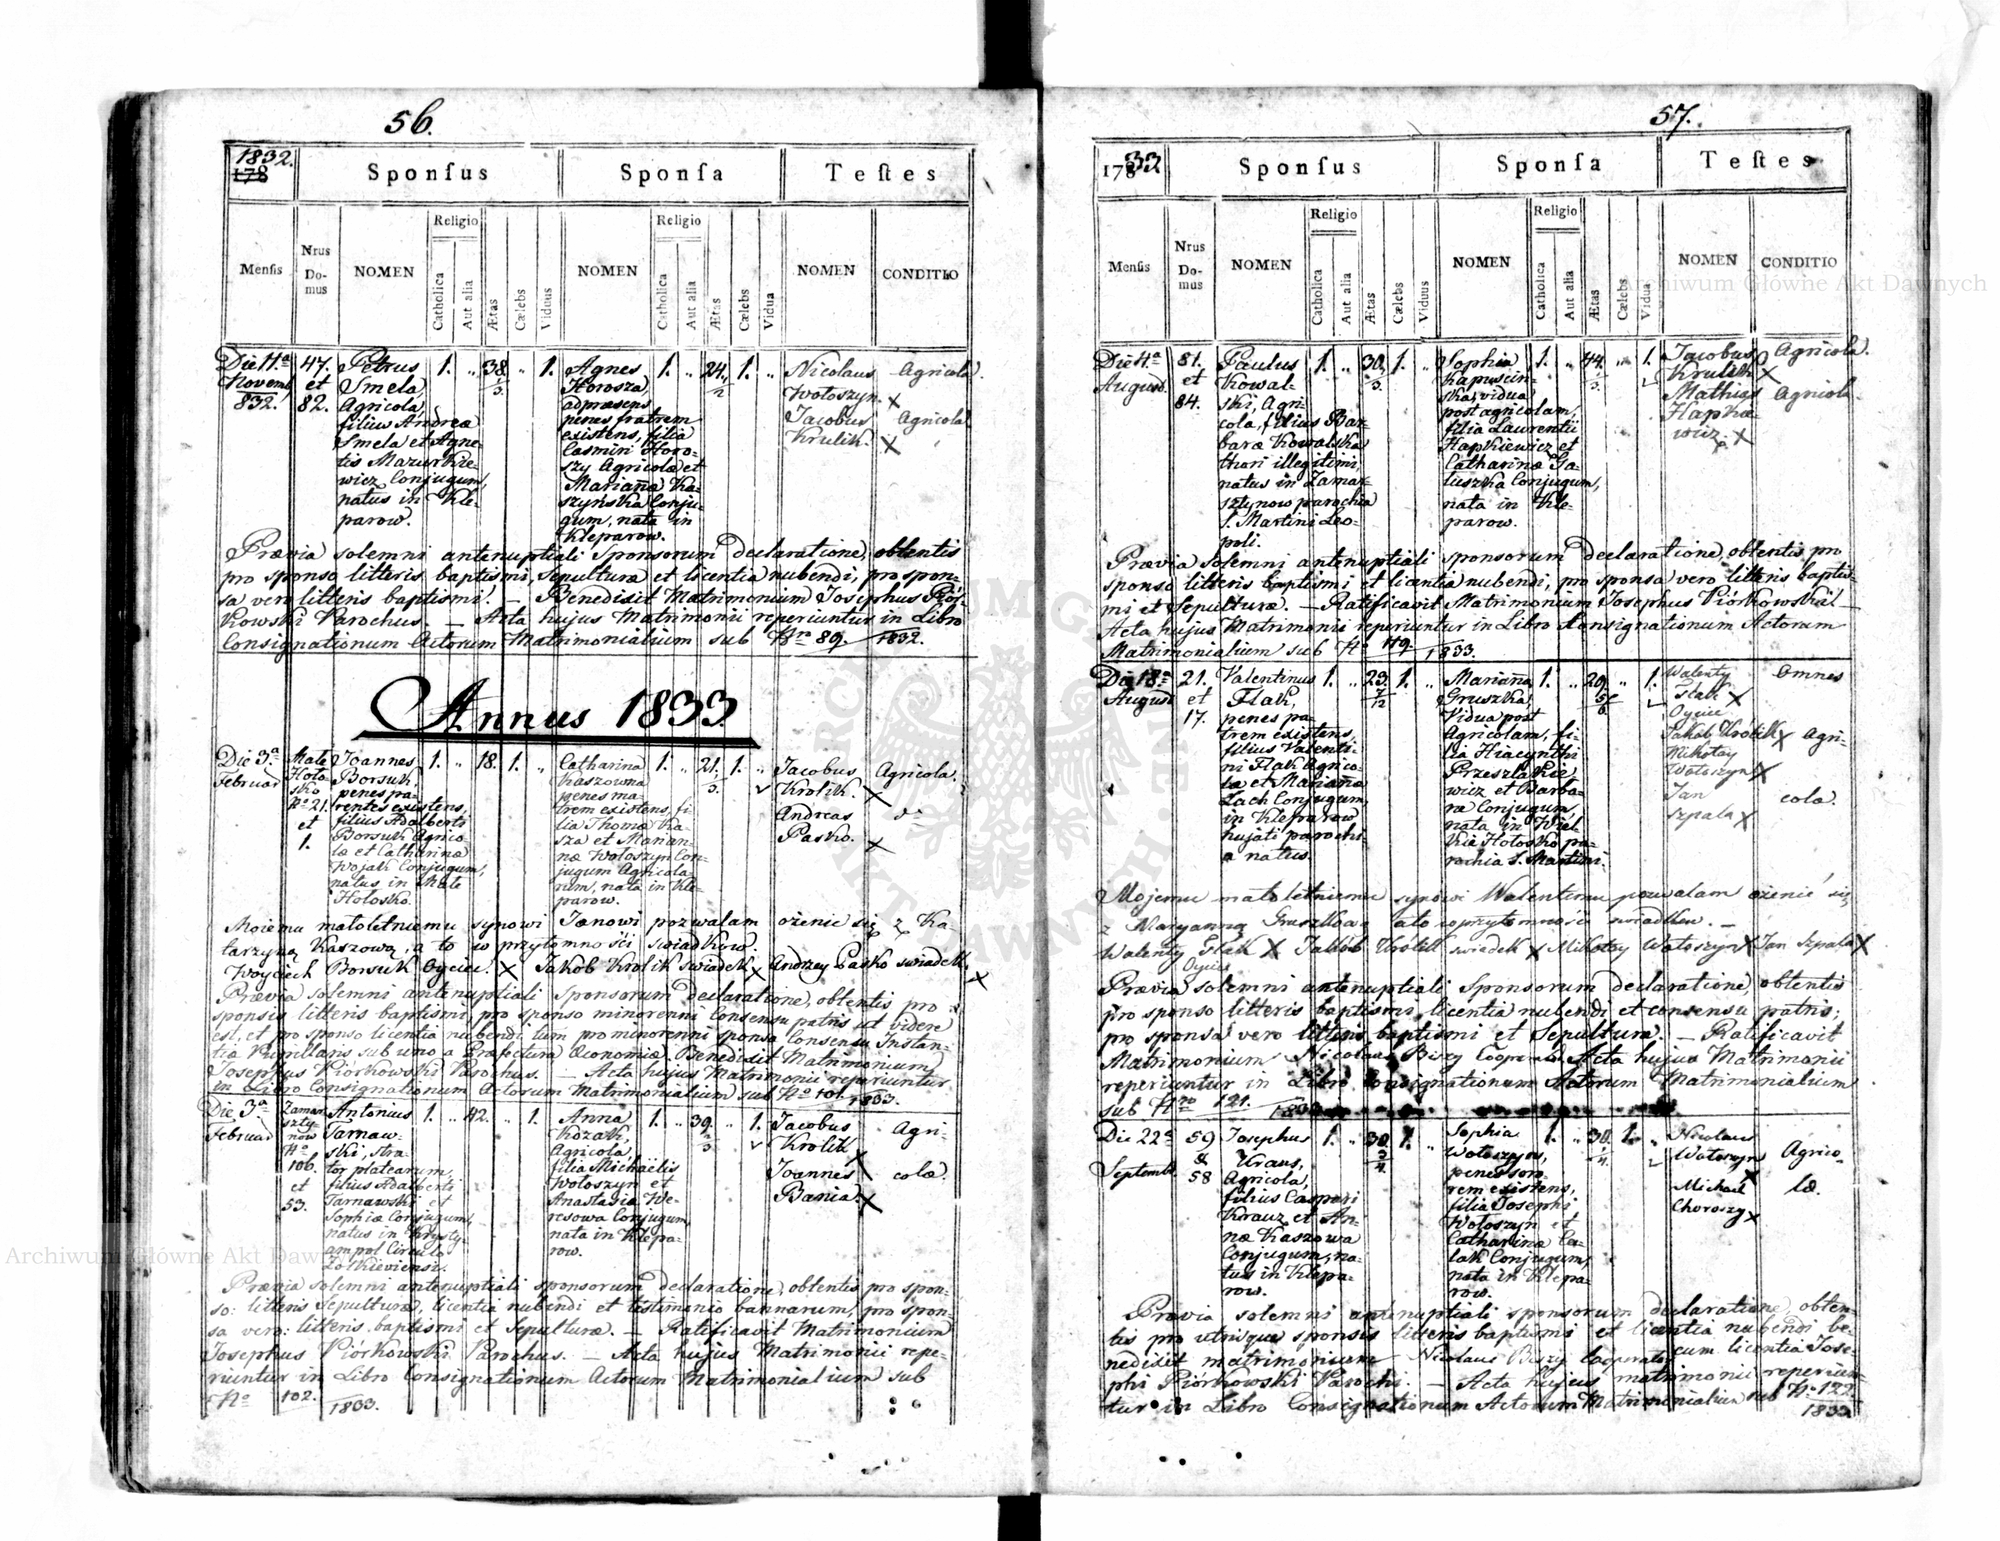 56.
1832.
178
Sponſus
Sponſa
Teſtes
Menſis
Nrus
Do-
mus
NOMEN
Religio
Catholica
Aut alia
Ætas
Cælebs
Viduus
NOMEN
Religio
Catholica
Aut alia
Ætas
Cælebs
Vidua
NOMEN
CONDITIO
Die 11ª
Novemb
832.
47.
et
82.
Petrus
Smela
Agricola,
filius Andreæ
Smela et Agne-
tis Mazurkie-
wicz Conjugum,
natus in Kle-
parow.
1. „ 38 „ 1.
3
Agnes
Horosza
adpræsens
penes fratrem
existens, filia
Casmiri Horo-
szy Agricolæ et
Mariañæ Ka-
szyńska Conju-
gum, nata in
Kleparow.
1. „ 24. 1. „
2
Nicolaus
Wołoszyn. X
Jacobus
Krulik. X
Agricola.
Agricola
Prævia solemni antenuptiali Sponsorum declaratione, obtentis
pro sponso litteris baptismi, Sepulturæ et licentia nubendi, pro spon-
sa vero litteris baptismi. — Benedixit Matrimonium Josephus Piór-
kowski Parochus. — Acta hujus Matrimonii reperiuntur in Libro
Consignationum Actorum Matrimonialium sub Nro 89. 1832.
Annus 1833
Die 3ª
Februar
Małe
Hoło
sko
No 21.
et
1.
Joannes
Borsuk
penes pa-
rentes existens,
filius Adalberti
Borsuk Agrico-
læ et Catharinæ
Wojak Conjugum,
natus in Małe
Hołosko.
1. „ 18. 1. „
Catharina
Kaszowna
penes ma-
trem existens, fi-
lia Thomæ Ka-
sza et Marian-
næ Wołoszyn Con-
jugum Agricola-
rum, nata in Kle-
parow.
1. „ 21. 1. „
3.
Jacobus
Krolik. X
Andreas
Pasko. X
Agricola.
Moiemu małoletniemu synowi Janowi pozwalam ożenic się z Ka-
tarzyną Kaszową, a to w przytomności swiadkow.
Woyciech Borsuk Oyciec. X Jakób Krolik swiadek X Andrzey Pasko swiadek X
Prævia solemni antenuptiali Sponsorum declaratione, obtentis pro
sponsis litteris baptismi, pro sponso minorenni Consensu patris ut videre
est, et pro sponso licentia nubendi tum pro minorenni sponsa Consensu Instan-
tiæ Pupillaris sub uno a Præfectura Œconomiæ. Benedixit Matrimonium
Josephus Piórkowski Parochus. — Acta hujus Matrimonii reperiuntur
in Libro Consignationum Actorum Matrimonialium sub No 101. 1833.
Die 3ª
Februar
Zamar
szty-
now
No
106.
et
53.
Antonius
Tarnaw-
ski, stra-
tor platearum,
filius Adalberti
Tarnawski et
Sophiæ Conjugum,
natus in Krysty-
ampol Circulo
Zołkieviensi.
1. „ 42. „ 1.
Anna
Kozak,
Agricola,
filia Michaëlis
Wołoszyn et
Anastasiæ We-
resowa Conjugum,
nata in Klepa-
row.
1. „ 39. „ 1.
3
Jacobus
Krolik X
Joannes
Bania. X
Agri-
colæ.
Prævia solemni antenuptiali sponsorum declaratione, obtentis pro spon-
so: litteris Sepulturæ, licentia nubendi et testimonio bannarum, pro spon-
sa vero: litteris baptismi et Sepulturæ. — Ratificavit Matrimonium
Josephus Piórkowski Parochus. — Acta hujus Matrimonii repe-
riuntur in Libro Consignationum Actorum Matrimonialium sub
No 102. 1833.
57.
178 33
Sponſus
Sponſa
Teſtes
Menſis
Nrus
Do-
mus
NOMEN
Religio
Catholica
Aut alia
Ætas
Cælebs
Viduus
NOMEN
Religio
Catholica
Aut alia
Ætas
Cælebs
Vidua
NOMEN
CONDITIO
Die 4ª
August.
81.
et
84.
Paulus
Kowal-
ski, Agri-
cola, filius Bar-
baræ Kowalska
thori illegitimi,
natus in Zamar-
sztynow parochia
S. Martini Leo-
poli.
1. „ 30. 1. „
3.
Sophia
Kapuscin-
ska, vidua
post agricolam,
filia Laurentii
Hapkiewicz et
Catharinæ Ga-
luszka Conjugum,
nata in Kle-
parow.
1. „ 44. „ 1.
3.
Jacobus
Krulik X
Mathias
Hapkie
wicz X
Agricola.
Agricola.
Prævia solemni antenuptiali sponsorum declaratione, obtentis pro
sponso litteris baptismi et licentia nubendi, pro sponsa vero litteris baptis-
mi et Sepulturæ. — Ratificavit Matrimonium Josephus Piórkowski —
Acta hujus Matrimonii reperiuntur in Libro Consignationum Actorum
Matrimonialium sub No 119. 1833.
Die 18ª
August
21.
et
17.
Valentinus
Flak,
penes pa-
trem existens,
filius Valenti-
ni Flak Agrico-
læ et Mariañæ
Lach Conjugum,
in Kleparow
hujati parochi-
a natus.
1. „ 23. 1. „
7
12
Mariañna
Gruszka,
Vidua post
Agricolam, fi-
lia Hiacynthi
Przeszlakie-
wicz et Barba-
ræ Conjugum,
nata in Wiel
kie Hołosko pa-
rochia S. Martini.
1. „ 29. „ 1.
5
6
Walenty
Flak X
Oyciec
Jakób Królik X
Mikołay
Wołoszyn X
Jan
Szpala X
Omnes
Agri-
cola.
Mojemu małoletniemu synowi Walentemu pozwalam ożenić się
z Maryanną Gruszkową a to w przytomności swiadków. —
Walenty Flak X Jakób Królik swiadek X Mikołay Wołoszyn X Jan Szpala X
Oyciec
Prævia solemni antenuptiali Sponsorum declaratione, obtentis
pro sponso litteris baptismi, licentia nubendi et consensu patris;
pro sponsa vero litteris baptismi et Sepulturæ. — Ratificavit
Matrimonium Nicolaus Bizy Acta hujus Matrimonii
reperiuntur in Libro Consignationum Actorum Matrimonialium
sub Nro 121.
Die 22ª
Septemb.
59
&
58
Josephus
Kraus,
Agricola,
filius Caspari
Krauz et An-
næ Kaszowa
Conjugum, na-
tus in Klepa-
row.
1. „ 30. 1. „
3
4
Sophia
Wołoszyn,
penes soro-
rem existens,
filia Josephi
Wołoszyn et
Catharinæ Ca-
lak Conjugum,
nata in Klepa-
row.
1. „ 30. 1. „
4.
Nicolaus
Wołoszyn
X
Michael
Choroszy X
Agrico-
læ.
Prævia solemni antenuptiali sponsorum declaratione, obten-
tis pro utrisque sponsis litteris baptismi et licentia nubendi be-
nedixit matrimonium Nicolaus Bizy Cooperator cum licentia Jose-
phi Piórkowski Parochi. — Acta hujus matrimonii reperiun-
tur in Libro Consignationum Actorum Matrimonialium sub No 122.
1833
Archiwum Główne Akt Dawnych
Archiwum Główne Akt Dawnych